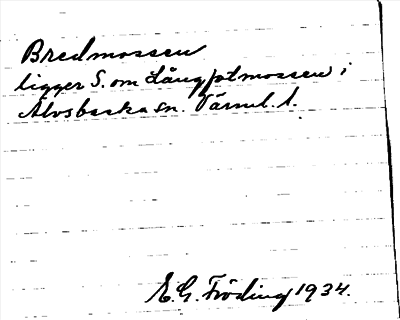 Bredmossen
ligger S. om Långfotmossen i
Älvsbacka sn. Värml. l.
E. G. Fröding 1934.